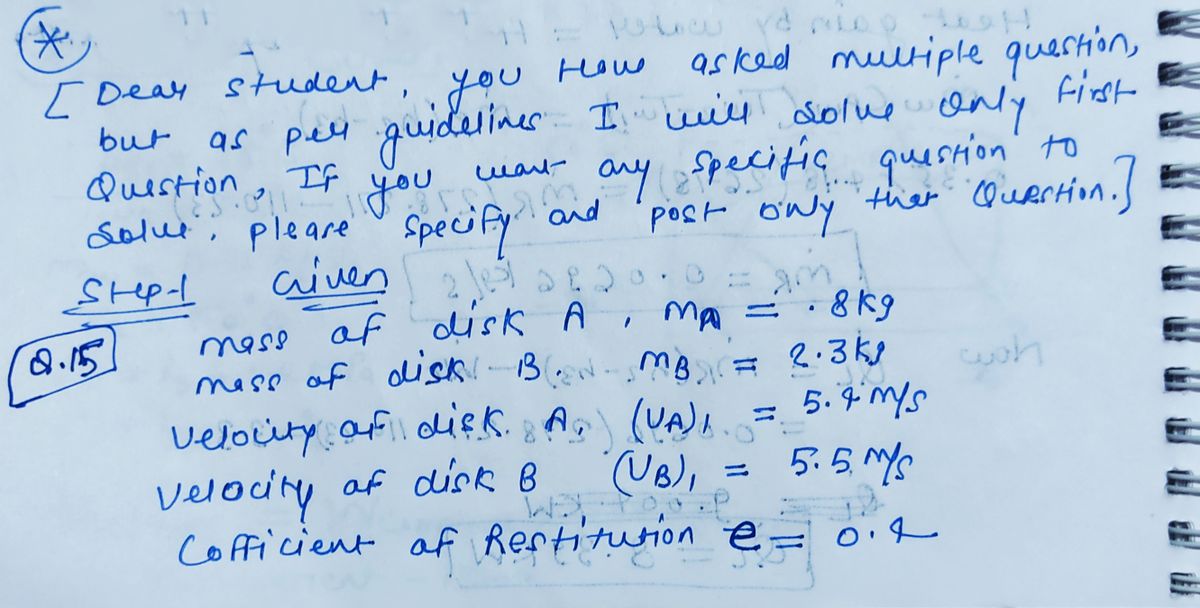 *
[Dear student, you Have asked multiple question,
but as per guidelines I will solve Only first
Question, If you want any specific question to
solve, please specify and post only that Question.]
Step-1 Given
Q.15
mass of disk A, mA = .8kg
mass of disk B. mB = 2.3kg
Velocity of disk. A, (VA)1 = 5.4 m/s
Velocity of disk B (VB)1 = 5.5 m/s
Cofficient of Restitution e = 0.4